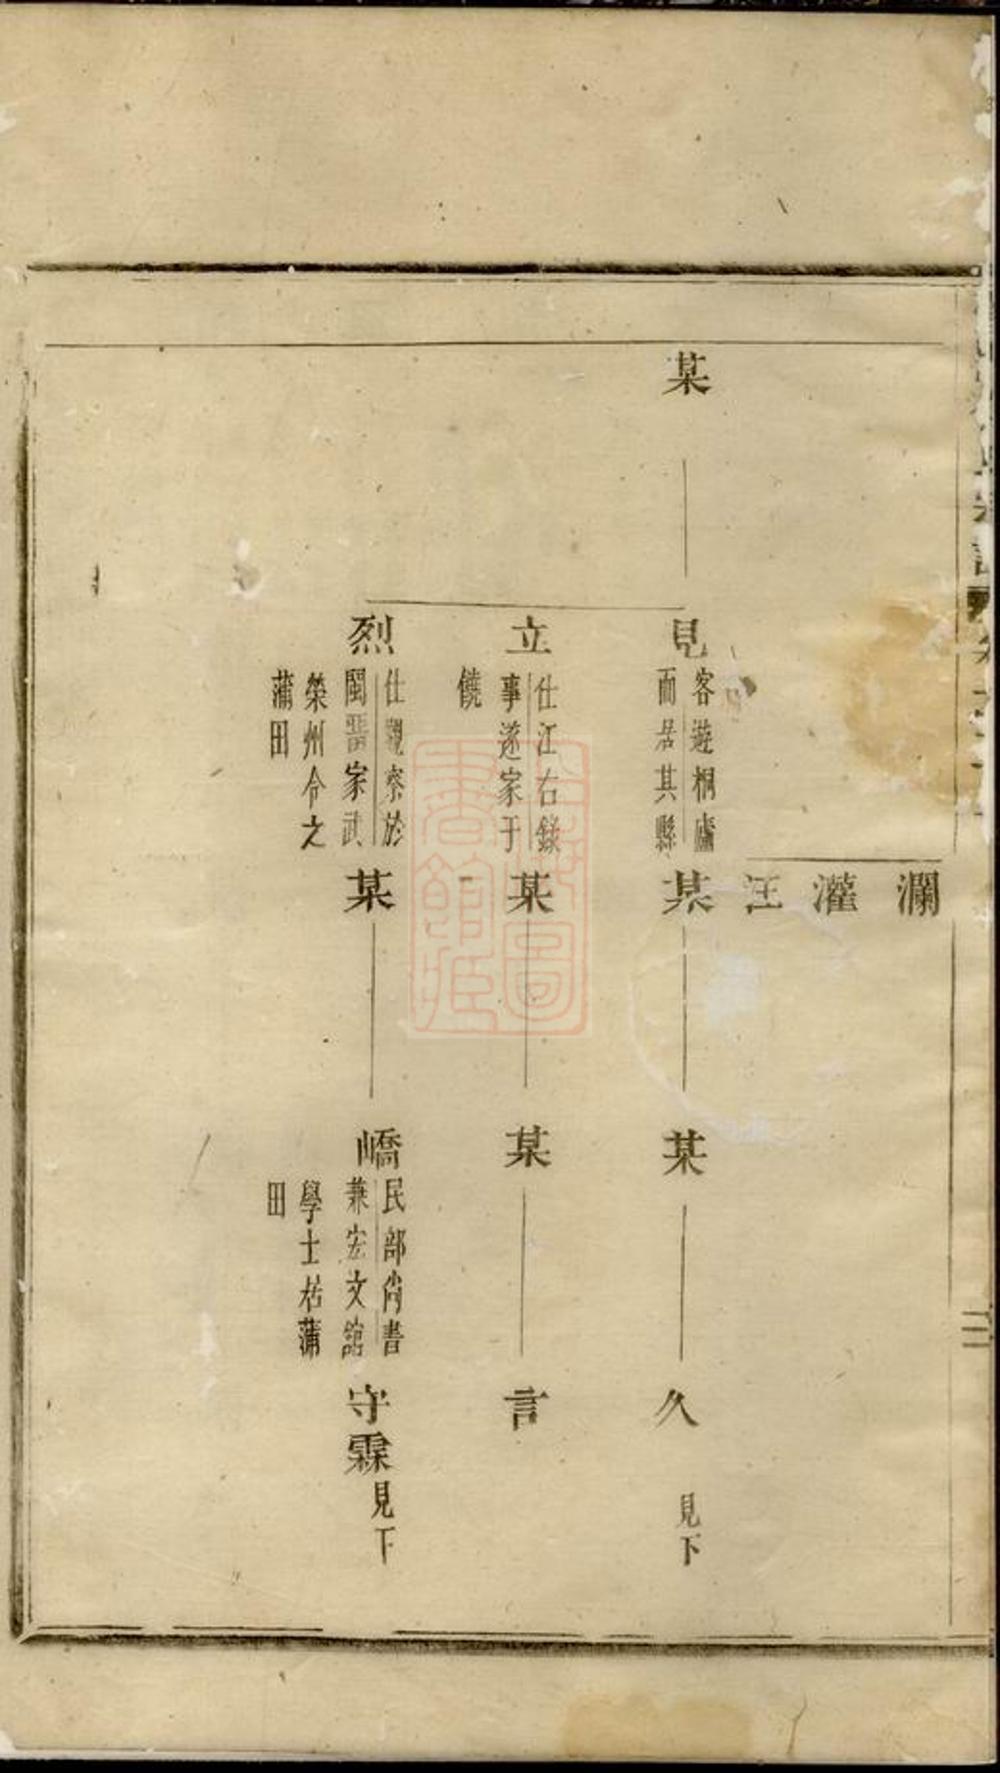 瀾
灌
汪
某
見
客遊桐廬
而居其縣
某
某
久
見下
立
仕江右錄
事遂家于
饒
某
某
言
烈
仕觀察於
閩晋家武
榮州令之
蒲田
某
嶠
民部尚書
兼宏文館
學士居蒲
田
守霖
見下
二